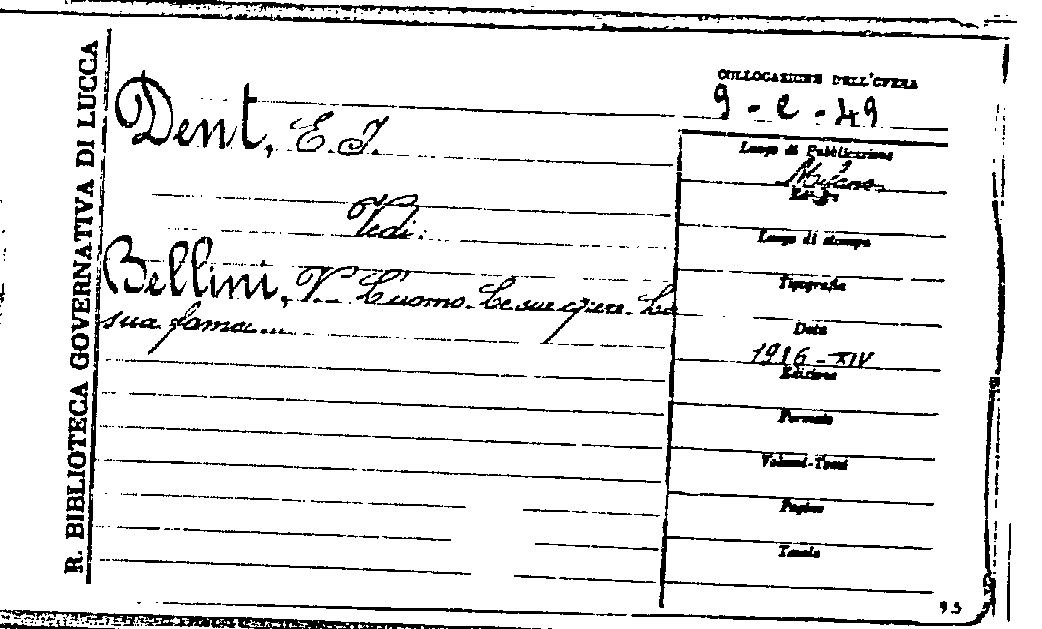 R. BIBLIOTECA GOVERNATIVA DI LUCCA
Dent, E. J.
Vedi:
Bellini, V. L'uomo. Le sue opere. La
sua fama...
COLLOCAZIONE DELL'OPERA
9 - e - 49
Luogo di Pubblicazione
Milano
Luogo di stampa
Tipografia
Data
1936 - XIV
Edizione
Formato
Volumi-Tomi
Pagine
Tavole